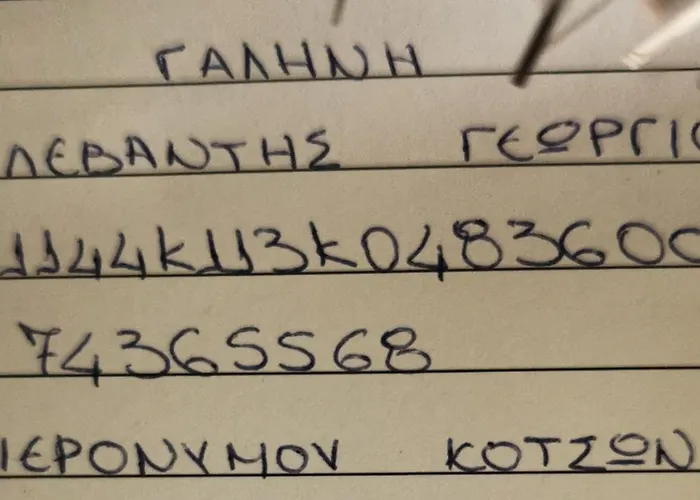 ΓΑΛΗΝΗ
ΛΕΒΑΝΤΗΣ ΓΕΩΡΓΙΟ
1144Κ113Κ0483600
74365568
ΙΕΡΟΝΥΜΟΥ ΚΟΤΣΩΝ